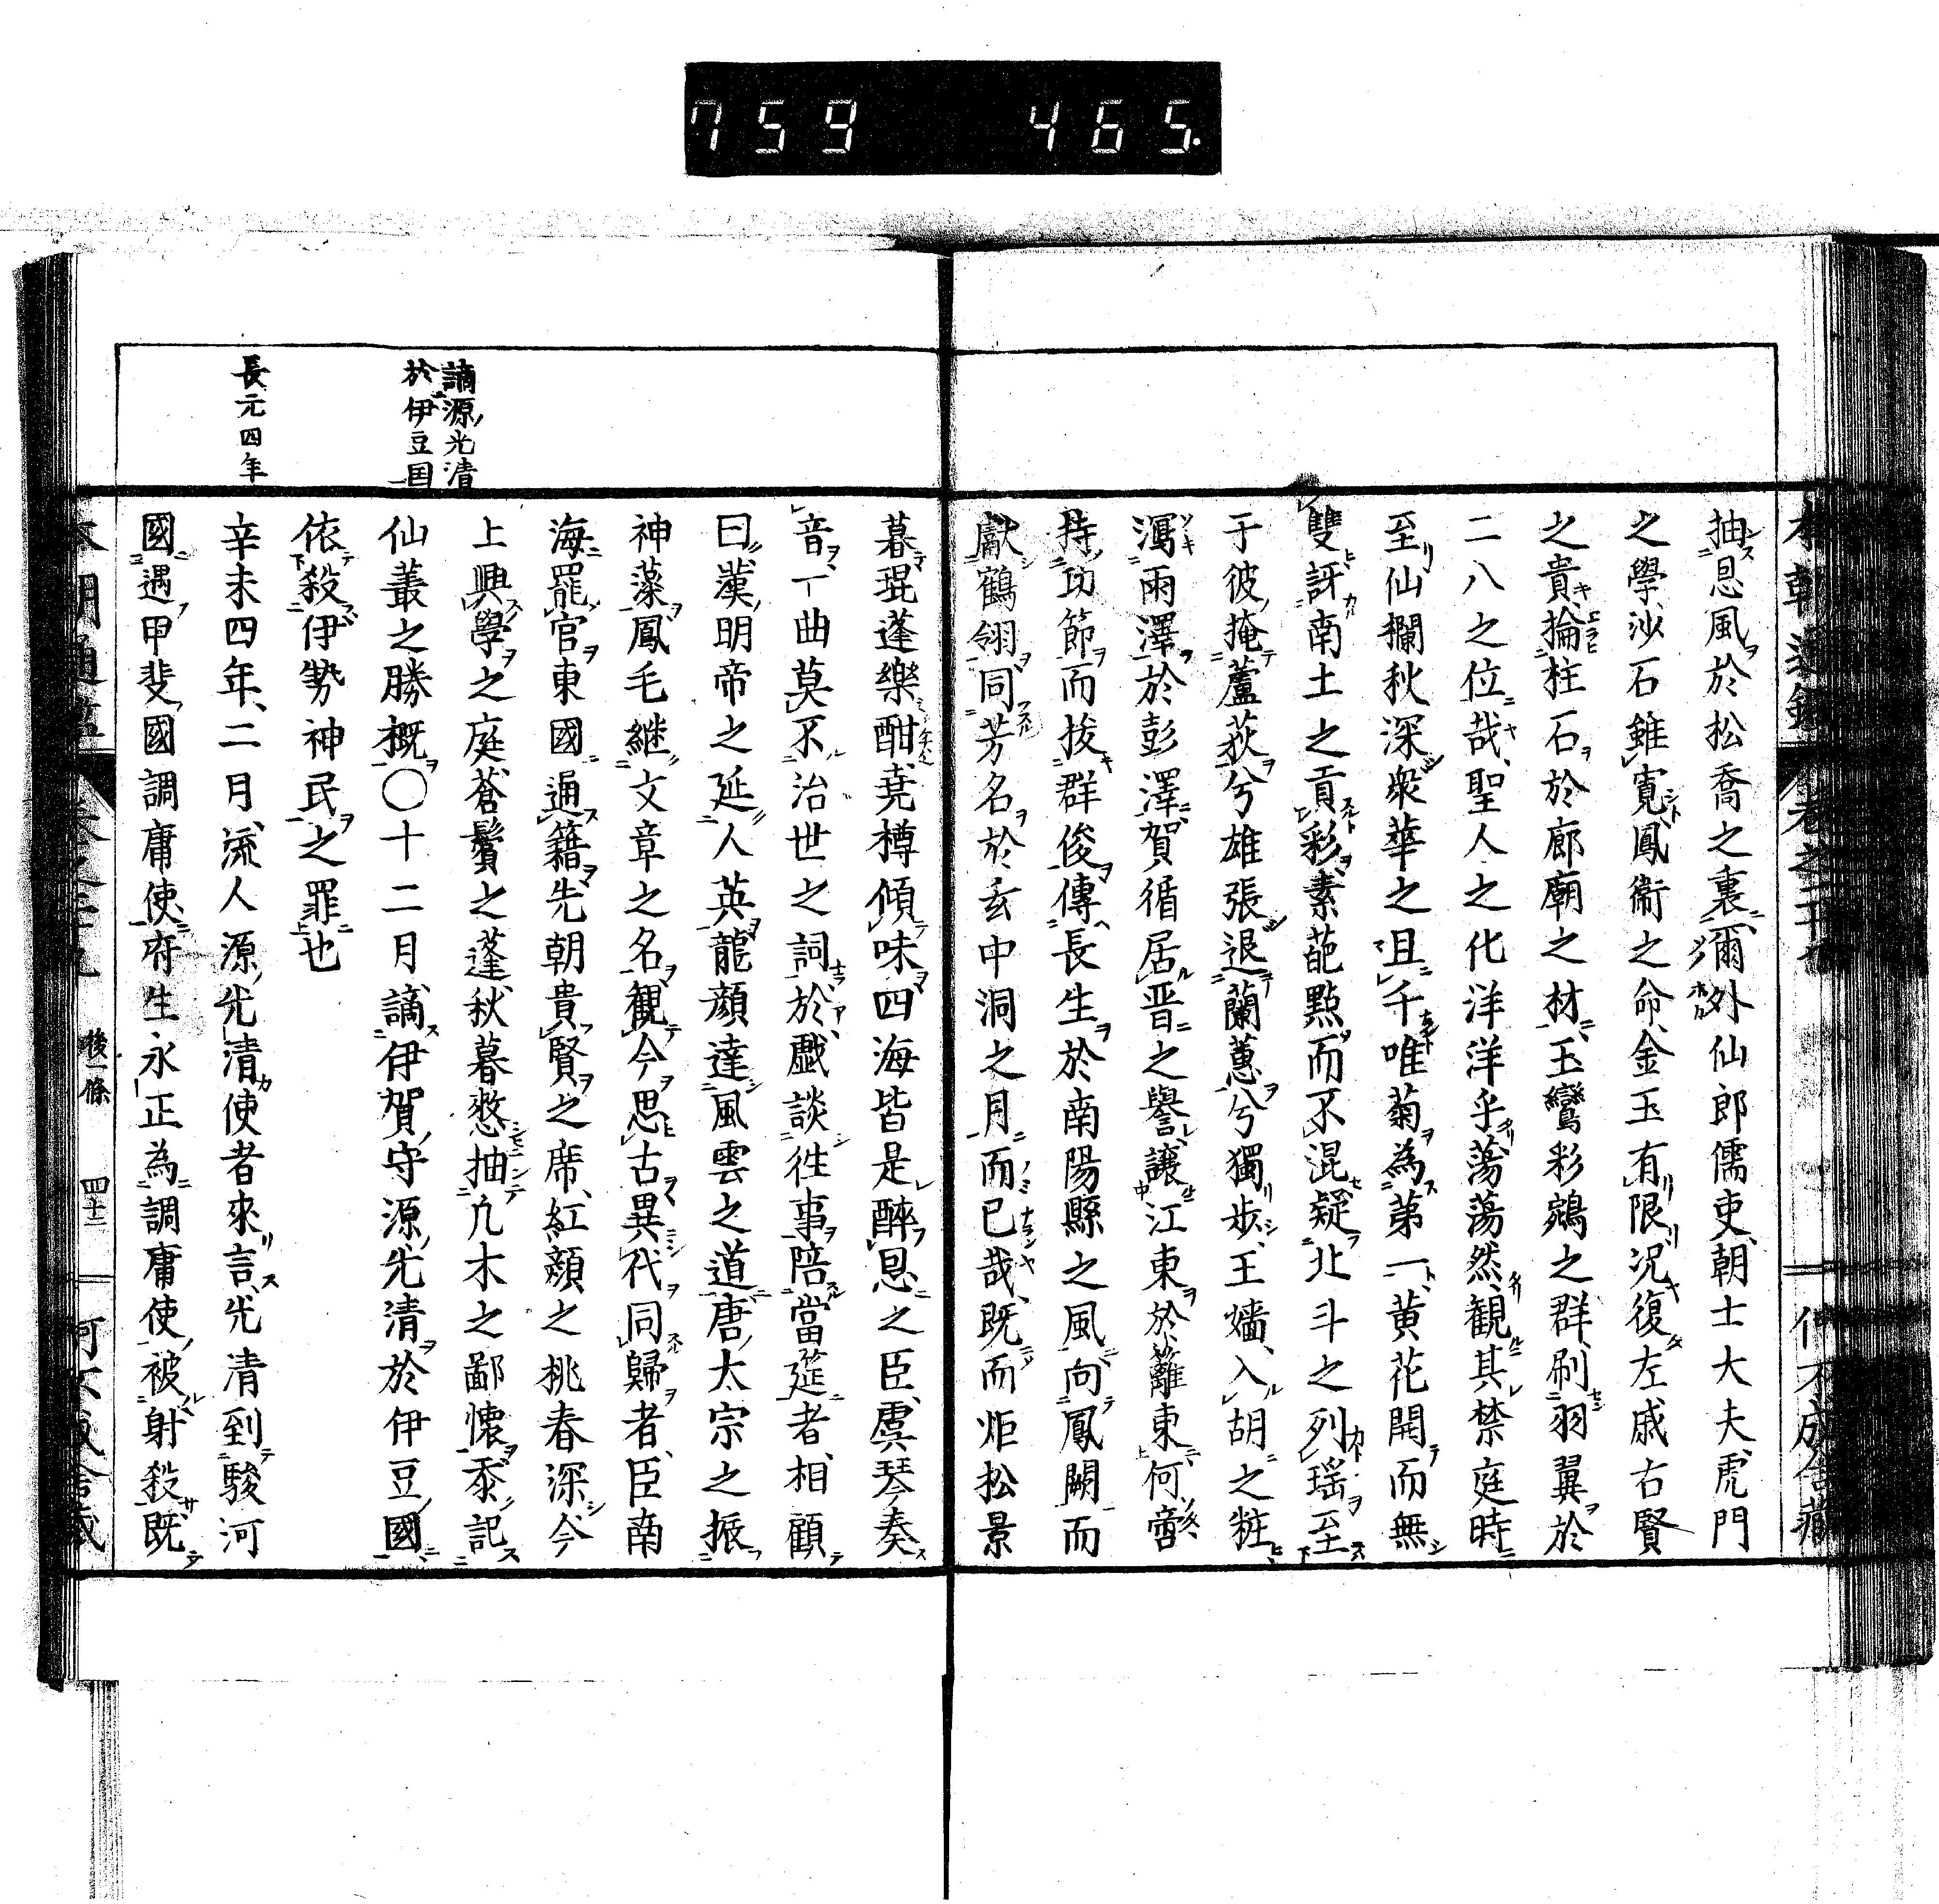 759 465.
抽恩風於松喬之裏爾外仙郎儒吏朝士大夫虎門
之學沙石雖寛鳳銜之命金玉有限況復左戚右賢
之貴掄柱石於廊廟之材玉鸞彩鵷之群刷羽翼於
二八之位哉聖人之化洋洋乎蕩蕩然観其禁庭時
至仙欄秋深衆華之且千唯菊為第一黄花開而無
雙訝南土之貢彩素葩點而不混疑北斗之列瑶至
于彼掩蘆荻兮雄張退蘭蕙兮獨歩王嬙入胡之粧
瀉雨澤於彭澤賀循居晋之譽譲江東於籬東何啻
持功節而抜群俊傳長生於南陽縣之風向鳳闕而
獻鶴翎同芳名於玄中洞之月而已哉既而炬松景
暮琨蓬樂酣堯樽傾味四海皆是酔恩之臣虞琴奏
音一曲莫不治世之詞於戯談徃事陪當筵者相顧
曰漢明帝之延人英龍顔達風雲之道唐太宗之振
神藻鳳毛継文章之名観今思古異代同歸者臣南
海罷官東國通籍先朝貴賢之席紅顔之桃春深今
上興學之庭蒼鬢之蓬秋暮憖抽凡木之鄙懐忝記
仙叢之勝概〇十二月謫伊賀守源光清於伊豆國
依殺伊勢神民之罪也
謫源光清
於伊豆国
辛未四年二月流人源光清使者來言光清到駿河
長元四年
國遇甲斐國調庸使府生永正為調庸使被射殺既
後一條
四十二